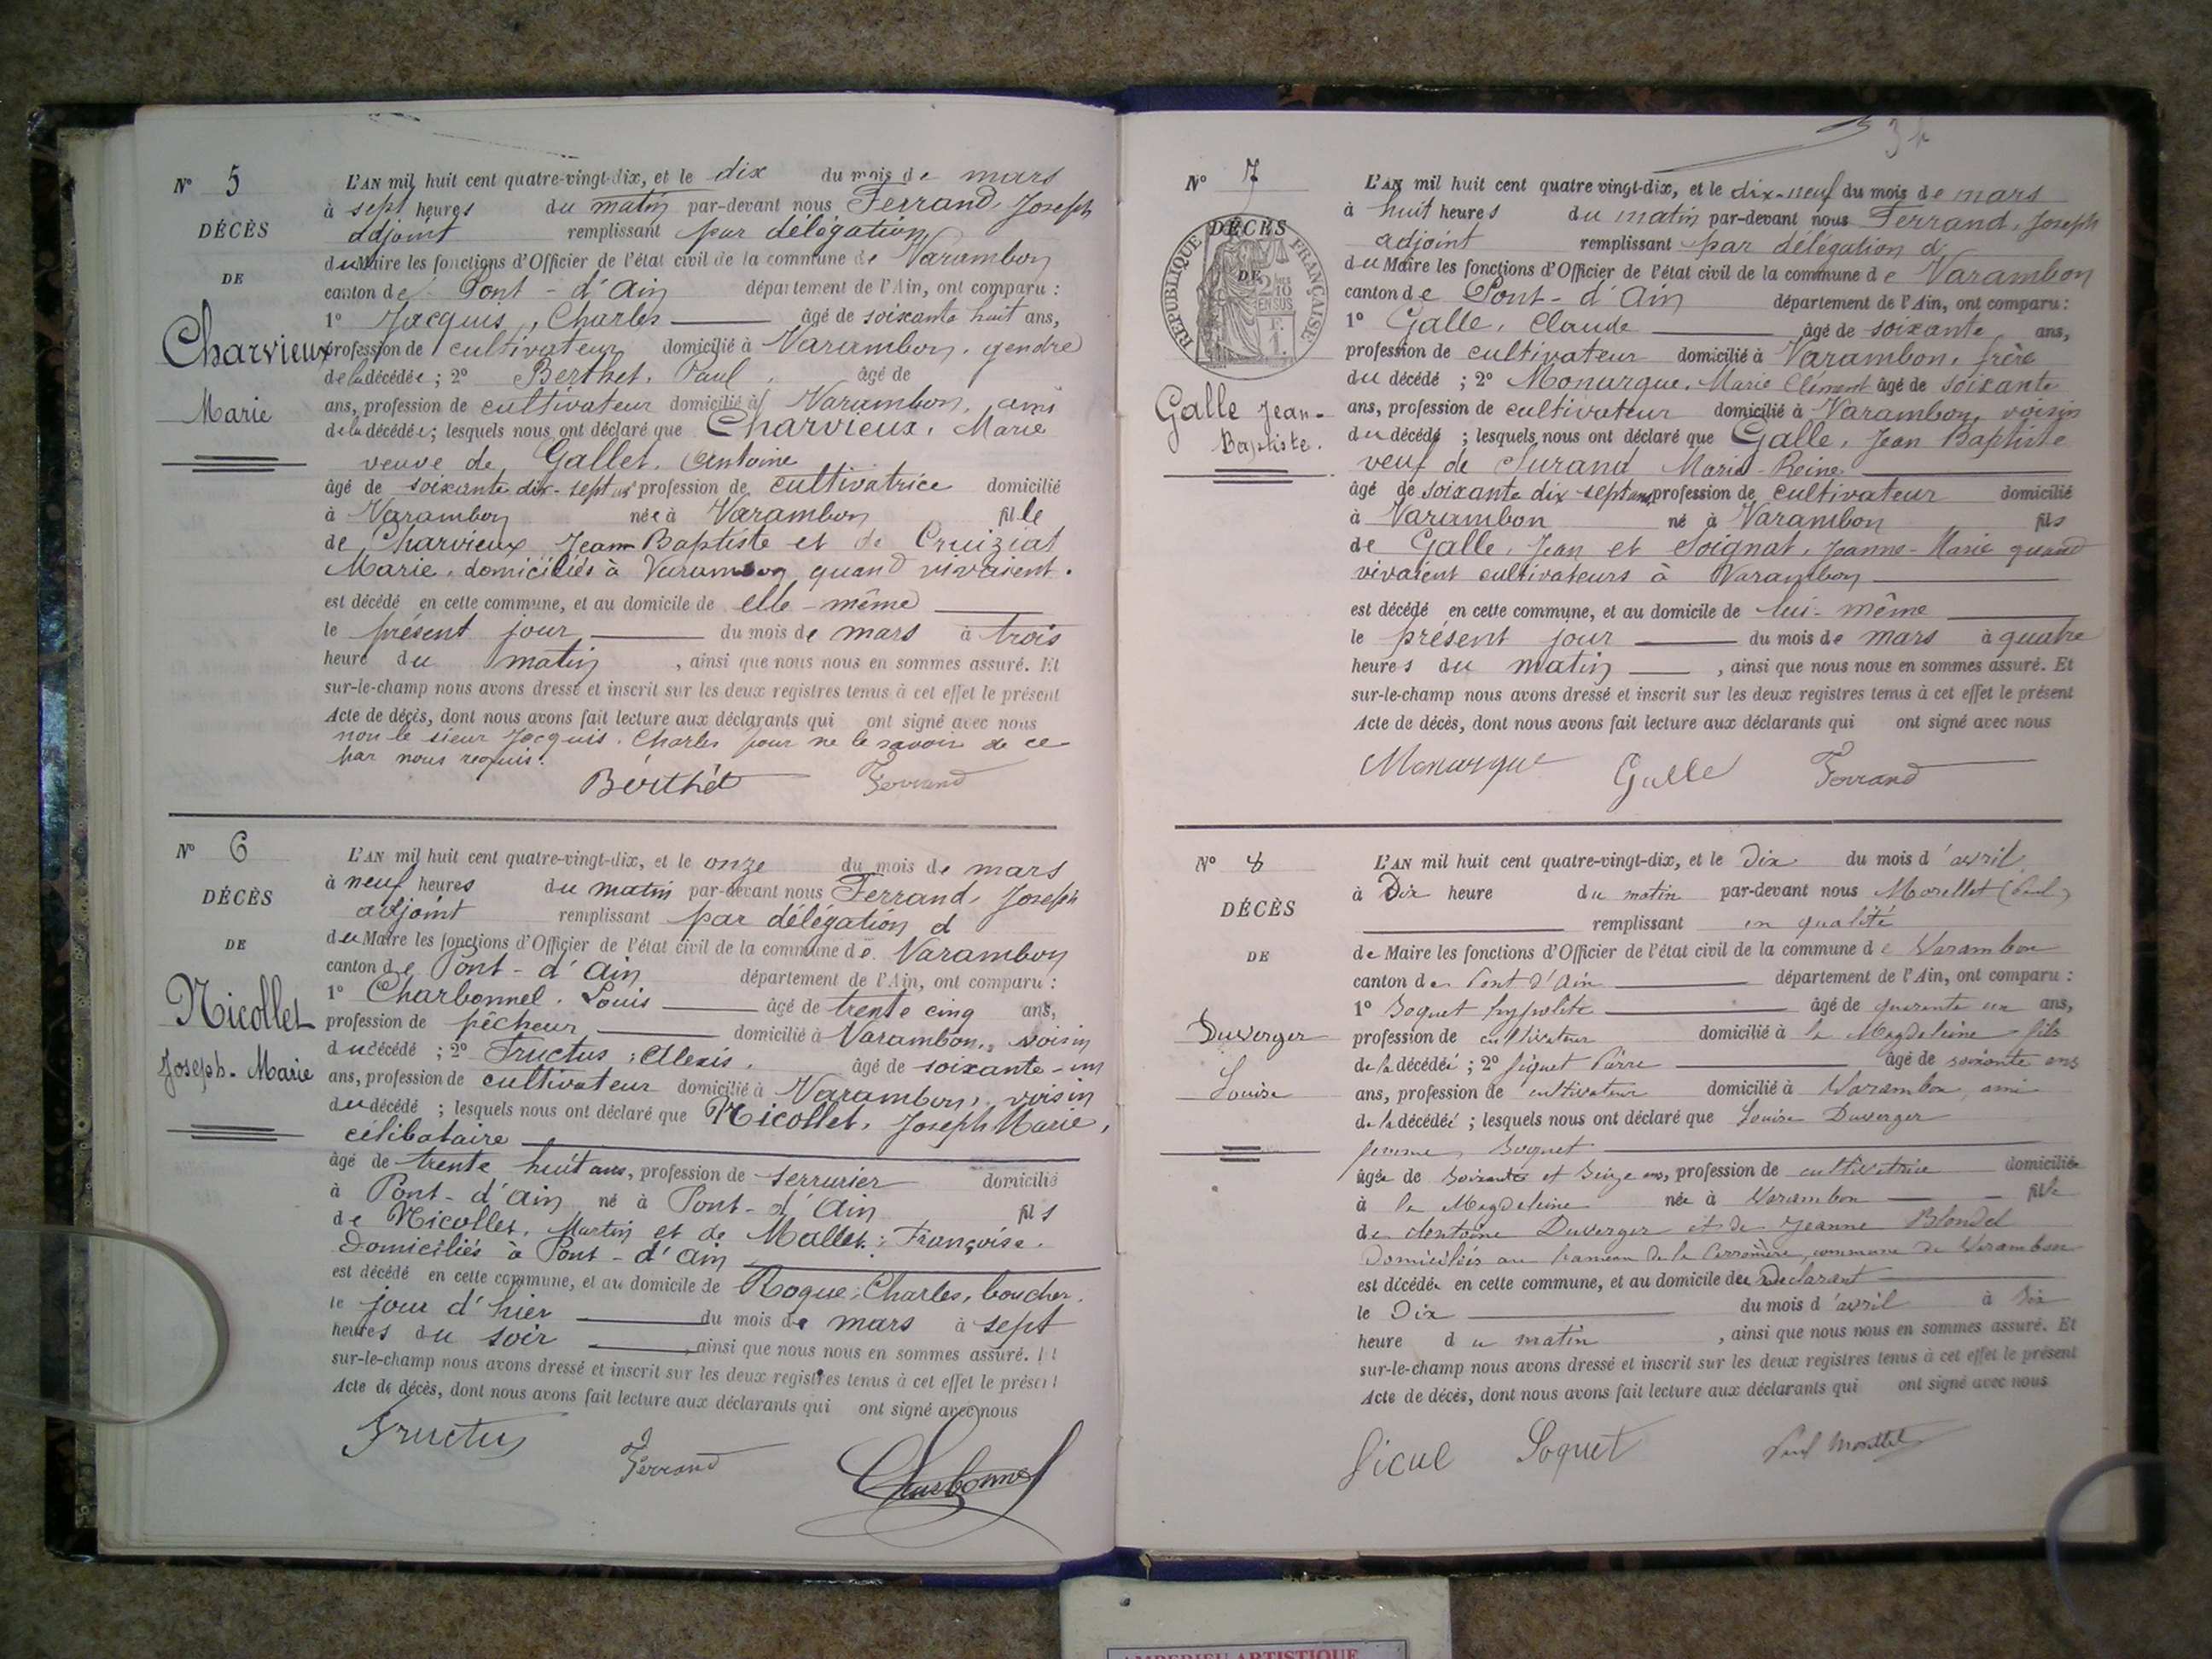 N° 5
DÉCÈS
DE
Charvieux
Marie
L'AN mil huit cent quatre-vingt-dix, et le dix du mois de mars
à sept heures du matin par-devant nous Ferrand, Joseph
adjoint remplissant par délégation
du Maire les fonctions d'Officier de l'état civil de la commune de Varambon
canton de Pont-d'Ain département de l'Ain, ont comparu :
1° Jacquis, Charles âgé de soixante huit ans,
profession de cultivateur domicilié à Varambon, gendre
de la décédée ; 2° Berthet, Paul, âgé de
ans, profession de cultivateur domicilié à Varambon, ami
de la décédée ; lesquels nous ont déclaré que Charvieux, Marie
veuve de Gallet, Antoine
âgé de soixante dix-sept ans profession de cultivatrice domicilié
à Varambon née à Varambon fille
de Charvieux Jean-Baptiste et de Cruiziat
Marie, domiciliés à Varambon quand vivaient.
est décédé en cette commune, et au domicile de elle-même
le présent jour du mois de mars à trois
heure du matin, ainsi que nous nous en sommes assuré. Et
sur-le-champ nous avons dressé et inscrit sur les deux registres tenus à cet effet le présent
Acte de décès, dont nous avons fait lecture aux déclarants qui ont signé avec nous
non le sieur Jacquis, Charles pour ne le savoir de ce
par nous requis.
Berthet Ferrand
N° 6
DÉCÈS
DE
Nicollet
Joseph-Marie
L'AN mil huit cent quatre-vingt-dix, et le onze du mois de mars
à neuf heures du matin par-devant nous Ferrand, Joseph
adjoint remplissant par délégation d
du Maire les fonctions d'Officier de l'état civil de la commune de Varambon
canton de Pont-d'Ain département de l'Ain, ont comparu :
1° Charbonnel, Louis âgé de trente cinq ans,
profession de pêcheur domicilié à Varambon, voisin
du décédé ; 2° Fructus, Alexis, âgé de soixante-un
ans, profession de cultivateur domicilié à Varambon, voisin
du décédé ; lesquels nous ont déclaré que Nicollet, Joseph Marie,
célibataire
âgé de trente huit ans, profession de serrurier domicilié
à Pont-d'Ain né à Pont-d'Ain fils
de Nicollet, Martin et de Mallet, Françoise.
Domiciliés à Pont-d'Ain
est décédé en cette commune, et au domicile de Roque, Charles, boucher.
le jour d'hier du mois de mars à sept
heures du soir, ainsi que nous nous en sommes assuré. Et
sur-le-champ nous avons dressé et inscrit sur les deux registres tenus à cet effet le présent
Acte de décès, dont nous avons fait lecture aux déclarants qui ont signé avec nous
Fructus Ferrand Charbonnel
N° 7
DÉCÈS
DE
RÉPUBLIQUE FRANÇAISE
2/10 EN SUS
Galle Jean-
Baptiste.
L'AN mil huit cent quatre vingt-dix, et le dix-neuf du mois de mars
à huit heures du matin par-devant nous Ferrand, Joseph
adjoint remplissant par délégation d
du Maire les fonctions d'Officier de l'état civil de la commune de Varambon
canton de Pont-d'Ain département de l'Ain, ont comparu :
1° Galle, Claude âgé de soixante ans,
profession de cultivateur domicilié à Varambon, frère
du décédé ; 2° Monarque, Marie Clément âgé de soixante
ans, profession de cultivateur domicilié à Varambon, voisin
du décédé ; lesquels nous ont déclaré que Galle, Jean Baptiste
veuf de Surand Marie-Reine
âgé de soixante dix sept ans, profession de cultivateur domicilié
à Varambon né à Varambon fils
de Galle, Jean et Soignat, Jeanne-Marie quand
vivaient cultivateurs à Varambon
est décédé en cette commune, et au domicile de lui-même
le présent jour du mois de mars à quatre
heures du matin, ainsi que nous nous en sommes assuré. Et
sur-le-champ nous avons dressé et inscrit sur les deux registres tenus à cet effet le présent
Acte de décès, dont nous avons fait lecture aux déclarants qui ont signé avec nous
Monarque Galle Ferrand
N° 8
DÉCÈS
DE
Duverger
Louise
L'AN mil huit cent quatre-vingt-dix, et le Dix du mois d'avril
à Dix heure du matin par-devant nous Morellet (Paul)
remplissant en qualité
de Maire les fonctions d'Officier de l'état civil de la commune de Varambon
canton de Pont d'Ain département de l'Ain, ont comparu :
1° Soquet hyppolite âgé de quarante un ans,
profession de cultivateur domicilié à la Magdeleine fils
de la décédée ; 2° Pierre âgé de soixante ans
ans, profession de cultivateur domicilié à Varambon, ami
de la décédée ; lesquels nous ont déclaré que Louise Duverger
femme Soquet
âgée de Soixante et Seize ans, profession de cultivatrice domiciliée
à la Magdeleine née à Varambon fille
de Antoine Duverger et de Jeanne Blondel
Domiciliés au hameau de la commune de Varambon
est décédée en cette commune, et au domicile du Déclarant
le Dix du mois d'avril à Six
heure du matin, ainsi que nous nous en sommes assuré. Et
sur-le-champ nous avons dressé et inscrit sur les deux registres tenus à cet effet le présent
Acte de décès, dont nous avons fait lecture aux déclarants qui ont signé avec nous
Soquet Paul Morellet
AMBERIEU ARTISTIQUE